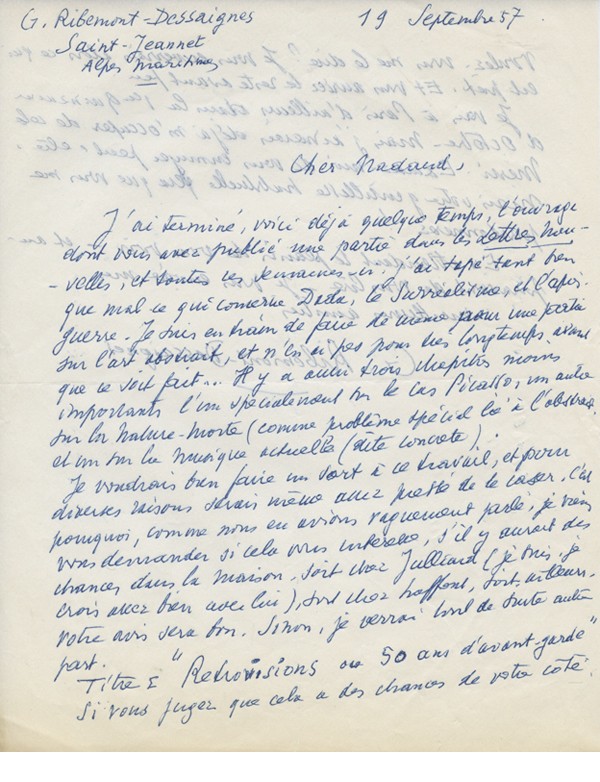 G. Ribemont-Dessaignes
19 Septembre 57.
Saint-Jeannet
Alpes Maritimes
Cher Nadaud,
J'ai terminé, voici déjà quelque temps, l'ouvrage
dont vous avez publié une partie dans les Lettres Nou-
-velles, et toutes ces semaines-ci, j'ai tapé tant bien
que mal ce qui concerne Dada, le Surréalisme et l'après
guerre. Je suis en train de faire de même pour une partie
sur l'art abstrait et n'en ai pas pour très longtemps avant
que ce soit fait... Il y a aussi trois chapitres moins
importants l'un spécialement sur le cas Picasso, un autre
sur la nature-morte (comme problème spécial lié à l'abstrac.
et un sur la musique actuelle (dite concrète).
Je voudrais bien faire un sort à ce travail, et pour
diverses raisons serais même assez pressé de le caser. C'est
pourquoi, comme nous en avions vaguement parlé, je viens
vous demander si cela vous intéresse, s'il y aurait des
chances dans la maison, soit chez Julliard (je suis, je
crois assez bien avec lui), soit chez Laffont, soit ailleurs.
Votre avis sera bon. Sinon, je verrai tout de suite autre
part.
Titre : "Rétrovisions ou 50 ans d'avant-garde"
Si vous jugez que cela a des chances de votre côté.